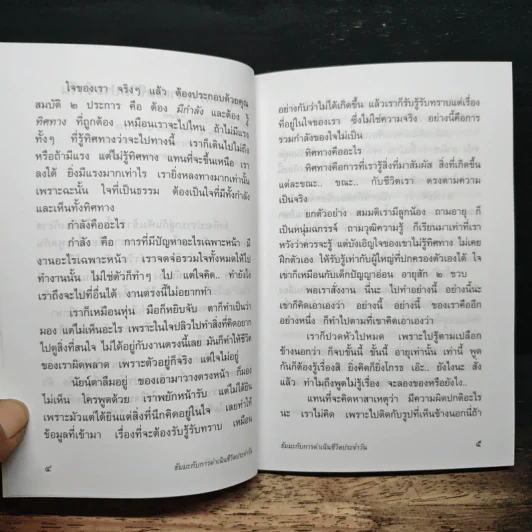 ใจของเรา จริงๆ แล้ว ต้องประกอบด้วยคุณ
สมบัติ ๒ ประการ คือ ต้อง มีกำลัง และต้อง รู้
ทิศทาง ที่ถูกต้อง เหมือนเราจะไปไหน ถ้าไม่มีแรง
ทั้งๆ ที่รู้ทิศทางว่าจะไปทางนี้ เราก็เดินไปไม่ถึง
หรือถ้ามีแรง แต่ไม่รู้ทิศทาง แทนที่จะขึ้นเหนือ เรา
ลงใต้ ยิ่งมีแรงมากเท่าไร เรายิ่งหลงทางมากเท่านั้น
เพราะฉะนั้น ใจที่เป็นธรรม ต้องเป็นใจที่มีทั้งกำลัง
และเห็นทั้งทิศทาง
กำลังคืออะไร
กำลัง คือ การที่มีปัญหาอะไรเฉพาะหน้า มี
งานอะไรเฉพาะหน้า เราจดจ่อรวมใจทั้งหมดได้ไป
ทำงานนั้น ไม่ใช่ตัวก็ทำๆ ไป แต่ใจคิด.. ทำยังไง
เราถึงจะไปที่อื่นได้ งานตรงนี้ไม่อยากทำ
เราก็เหมือนหุ่น มือก็หยิบจับ ตาก็ทำเป็นว่า
มอง แต่ไม่เห็นอะไร เพราะในใจปลิวไปทำสิ่งที่คิดอยาก
ไปดูสิ่งที่สนใจ ไม่ได้อยู่กับงานตรงนี้เลย มันก็ทำให้ชีวิต
ของเรามีดพลาด เพราะตัวอยู่ก็จริง แต่ใจไม่อยู่
นัยน์ตาลืมอยู่ ของเอามาวางตรงหน้า ก็มอง
ไม่เห็น ใครพูดด้วย เราพยักหน้ารับ แต่ไม่ได้ยิน
เพราะมัวแต่ได้ยินแต่สิ่งที่นึกคิดอยู่ในใจ เลยทำให้
ข้อมูลที่เข้ามา เรื่องที่จะต้องรับรู้รับทราบ เหมือน
๔
ธัมมะกับการดำเนินชีวิตประจำวัน
อย่างกับว่าไม่ได้เกิดขึ้น แล้วเราก็รับรู้รับทราบแต่เรื่อง
ที่อยู่ในใจของเรา ซึ่งไม่ใช่ความจริง อย่างนี้คือการ
รวมกำลังของใจไม่เป็น
ทิศทางคืออะไร
ทิศทางคือการที่เรารู้สิ่งที่มาสัมผัส สิ่งที่เกิดขึ้น
แต่ละขณะ.. ขณะ.. กับชีวิตเรา ตรงตามความ
เป็นจริง
ยกตัวอย่าง สมมติเรามีลูกน้อง ถามอายุ ก็
เป็นหนุ่มฉกรรจ์ ถามวุฒิความรู้ ก็เรียนมาเท่าที่เรา
หวังว่าควรจะรู้ แต่บังเอิญใจของเขาไม่รู้ทิศทาง ไม่เคย
ฝึกตัวเอง ให้รับรู้เท่ากับผู้ใหญ่ที่ปกครองตัวเองได้ ใจ
เขาก็เหมือนกับเด็กปัญญาอ่อน อายุสัก ๒ ขวบ
พอเราสั่งงาน นี่นะ ไปทำอย่างนี้ อย่างนี้นะ
เขาก็คิดเอาเองว่า อย่างนี้ อย่างนี้ ของเราคืออีก
อย่างหนึ่ง ก็ทำไปตามที่เขาคิดเอาเองว่า
เราก็ปวดหัวไปหมด เพราะไปรู้ตามเปลือก
ข้างนอกว่า ก็จบชั้นนี้ ชั้นนี้ อายุเท่านั้น เท่านี้ พูด
กันก็ต้องรู้เรื่องสิ ยิ่งคิดก็ยิ่งโกรธ เอ๊ะ.. ยังไงนะ สั่ง
แล้ว ทำไมถึงพูดไม่รู้เรื่อง จะลองของหรือยังไง..
แทนที่จะคิดหาสาเหตุว่า มีความผิดปกติอะไร
นะ เราไม่คิด เพราะไปติดกับรูปที่เห็นข้างนอกนี่ถ้า
ธัมมะกับการดำเนินชีวิตประจำวัน
๕